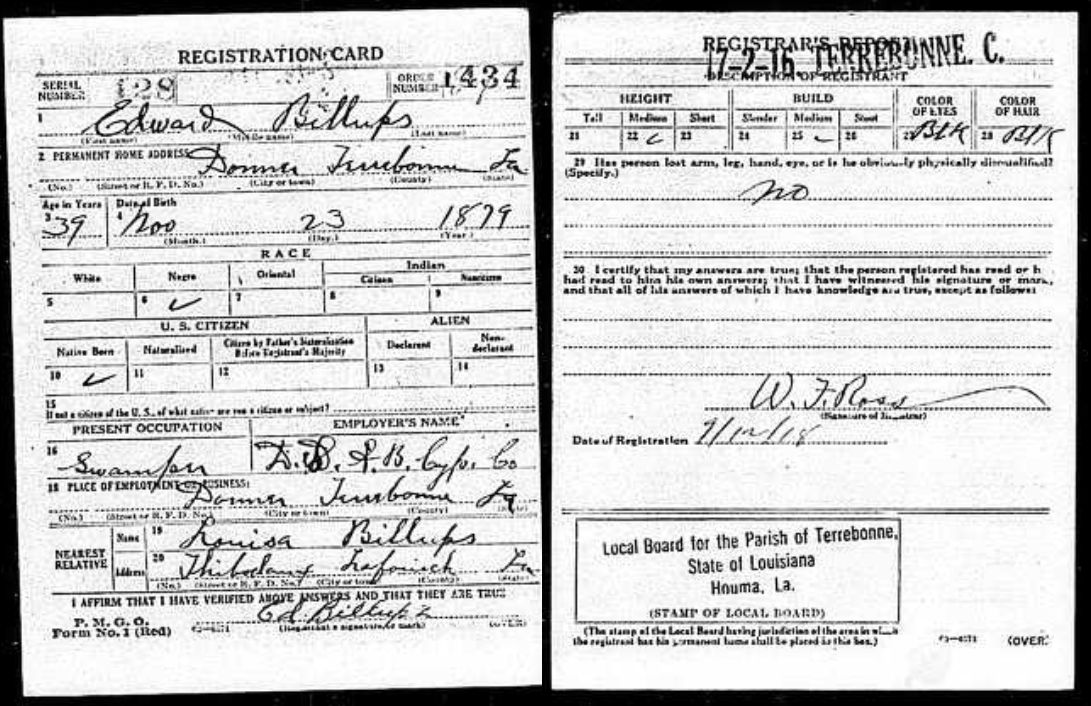 REGISTRATION CARD
SERIAL NUMBER 128 ORDER NUMBER 1434
1 Edward Billups
(First name) (Middle name) (Last name)
2 PERMANENT HOME ADDRESS: Donner Terrebonne La
(No.) (Street or R. F. D. No.) (City or town) (County) (State)
Age in Years Date of Birth
3 39 4 Nov 23 1879
(Month.) (Day.) (Year.)
RACE
White Negro Oriental Indian
Citizen Noncitizen
5 6 ✓ 7 8 9
U. S. CITIZEN ALIEN
Native Born Naturalized Citizen by Father's Naturalization Before Registrant's Majority Declarant Non-declarant
10 ✓ 11 12 13 14
15
If not a citizen of the U. S., of what nation are you a citizen or subject?
PRESENT OCCUPATION EMPLOYER'S NAME
16 Swamper D. B. Cyp. Co
18 PLACE OF EMPLOYMENT OR BUSINESS:
Donner Terrebonne La
(No.) (Street or R. F. D. No.) (City or town) (County) (State)
NEAREST RELATIVE
Name 19 Louisa Billups
Address 20 Thibodaux Lafourche La
(No.) (Street or R. F. D. No.) (City or town) (County) (State)
I AFFIRM THAT I HAVE VERIFIED ABOVE ANSWERS AND THAT THEY ARE TRUE
P. M. G. O.
Form No. 1 (Red) Ed Billups
(Registrant's signature or mark) (OVER)
REGISTRAR'S REPORT
17-2-16 TERREBONNE. C.
DESCRIPTION OF REGISTRANT
HEIGHT BUILD COLOR OF EYES COLOR OF HAIR
Tall Medium Short Slender Medium Stout
21 22 ✓ 23 24 25 ✓ 26 27 Blk 28 Blk
29 Has person lost arm, leg, hand, eye, or is he obviously physically disqualified?
(Specify.)
no
30 I certify that my answers are true; that the person registered has read or h
had read to him his own answers; that I have witnessed his signature or mark,
and that all of his answers of which I have knowledge are true, except as follows:
W. F. Ross
(Signature of Registrar)
Date of Registration 9/12/18
Local Board for the Parish of Terrebonne,
State of Louisiana
Houma, La.
(STAMP OF LOCAL BOARD)
(The stamp of the Local Board having jurisdiction of the area in which
the registrant has his permanent home shall be placed in this box.)
(OVER)